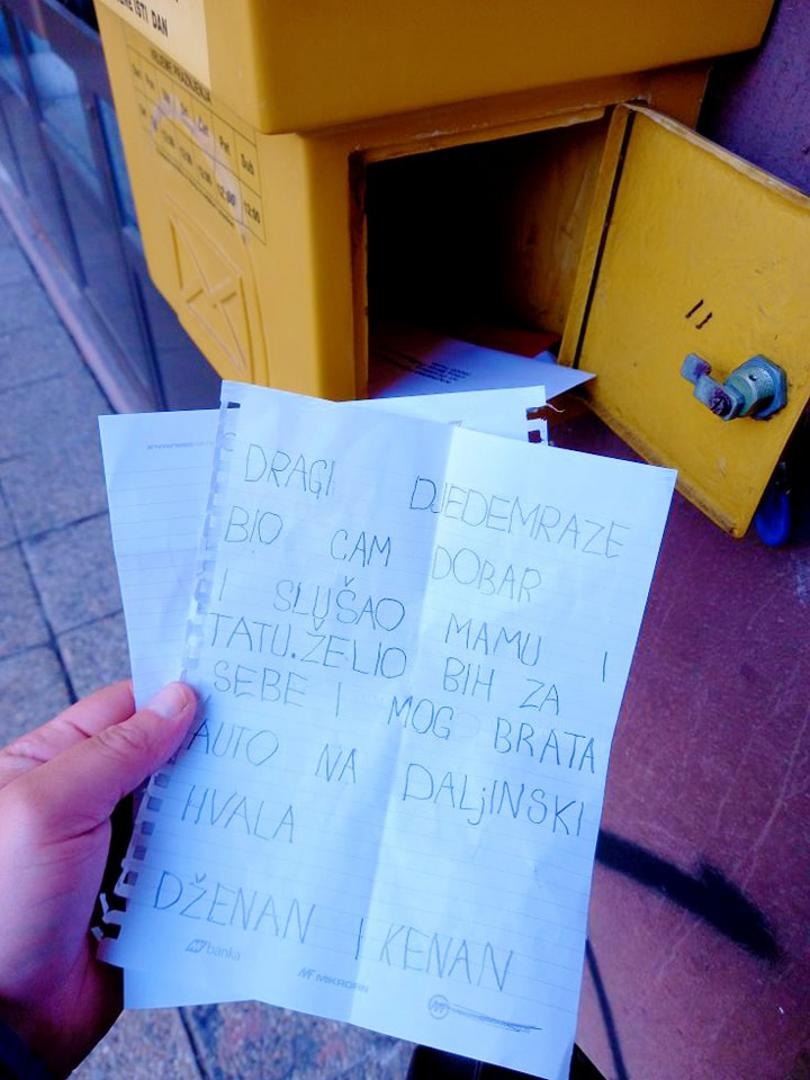 ISTI DAN
VRIJEME PRAŽNJENJA
Pet Sub
12:00 12:00
DRAGI DJEDEMRAZE
BIO CAM DOBAR
I SLUŠAO MAMU I
TATU.ŽELIO BIH ZA
SEBE I MOG BRATA
AUTO NA DALjINSKI
HVALA
DŽENAN I KENAN
banka
MIKROFIN